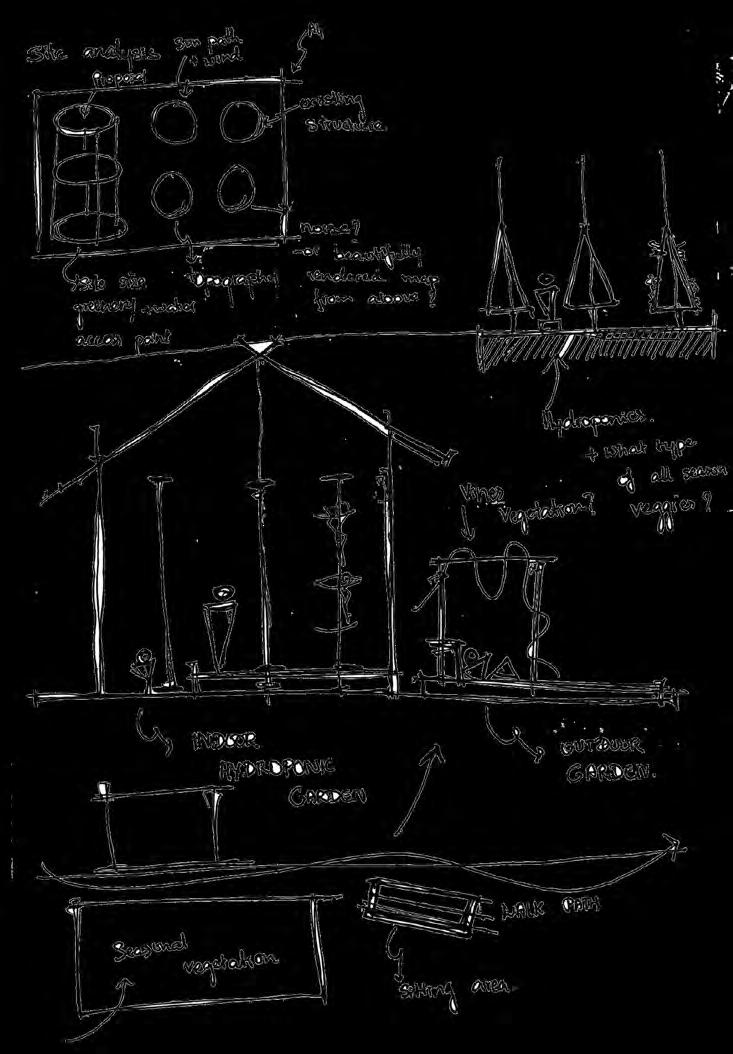 Site analysis
Proposal
Sun path
+ wind
A1
existing
structure
noise?
or beautifully
rendered map
from above?
Topography
greenery water
access point
Hydroponics.
+ what type
of all season
veggies?
Vines
vegetation?
INDOOR
HYDROPONIC
GARDEN
OUTDOOR
GARDEN.
WALK PATH
Seasonal
vegetation
Sitting area.